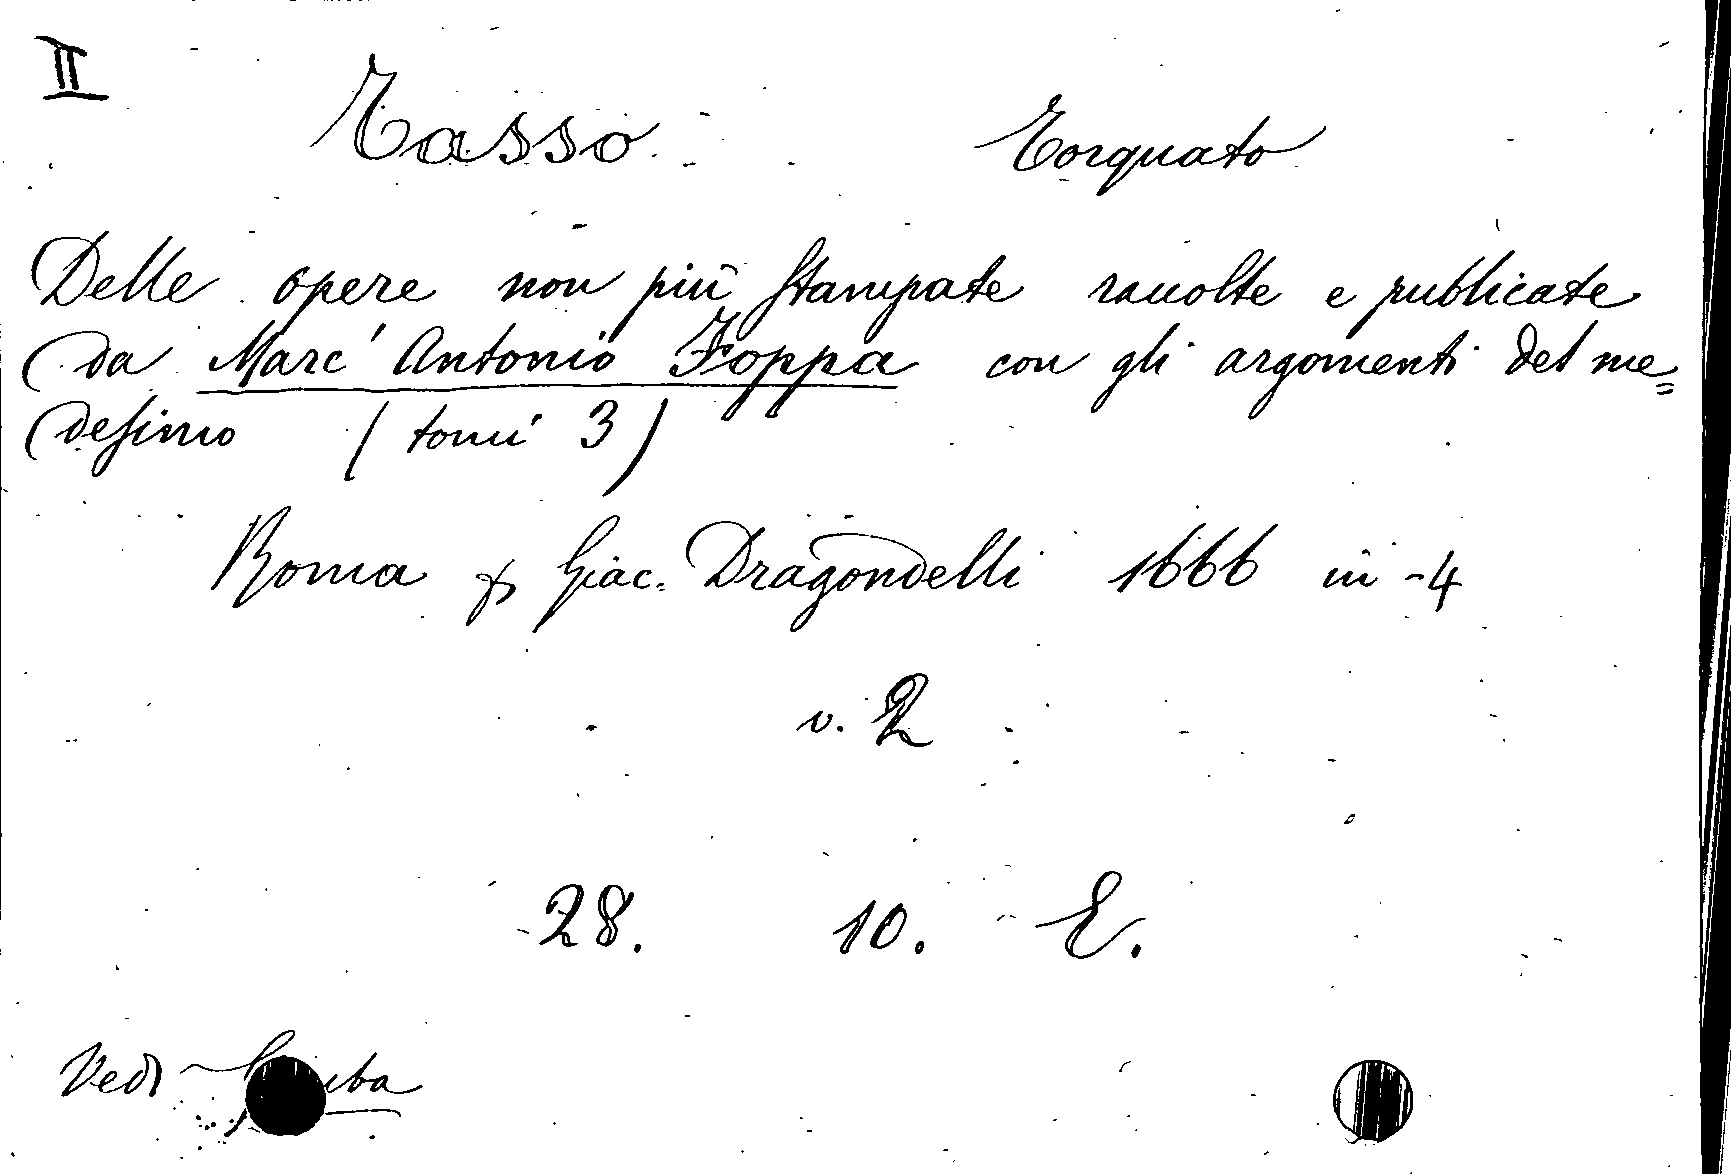 II
Tasso Torquato
Delle opere non più stampate raccolte e publicate
da Marc' Antonio Foppa con gli argomenti del me=
desimo (tomi 3)
Roma p Giac. Dragondelli 1666 in-4
v. 2
28. 10. E.
Vedi